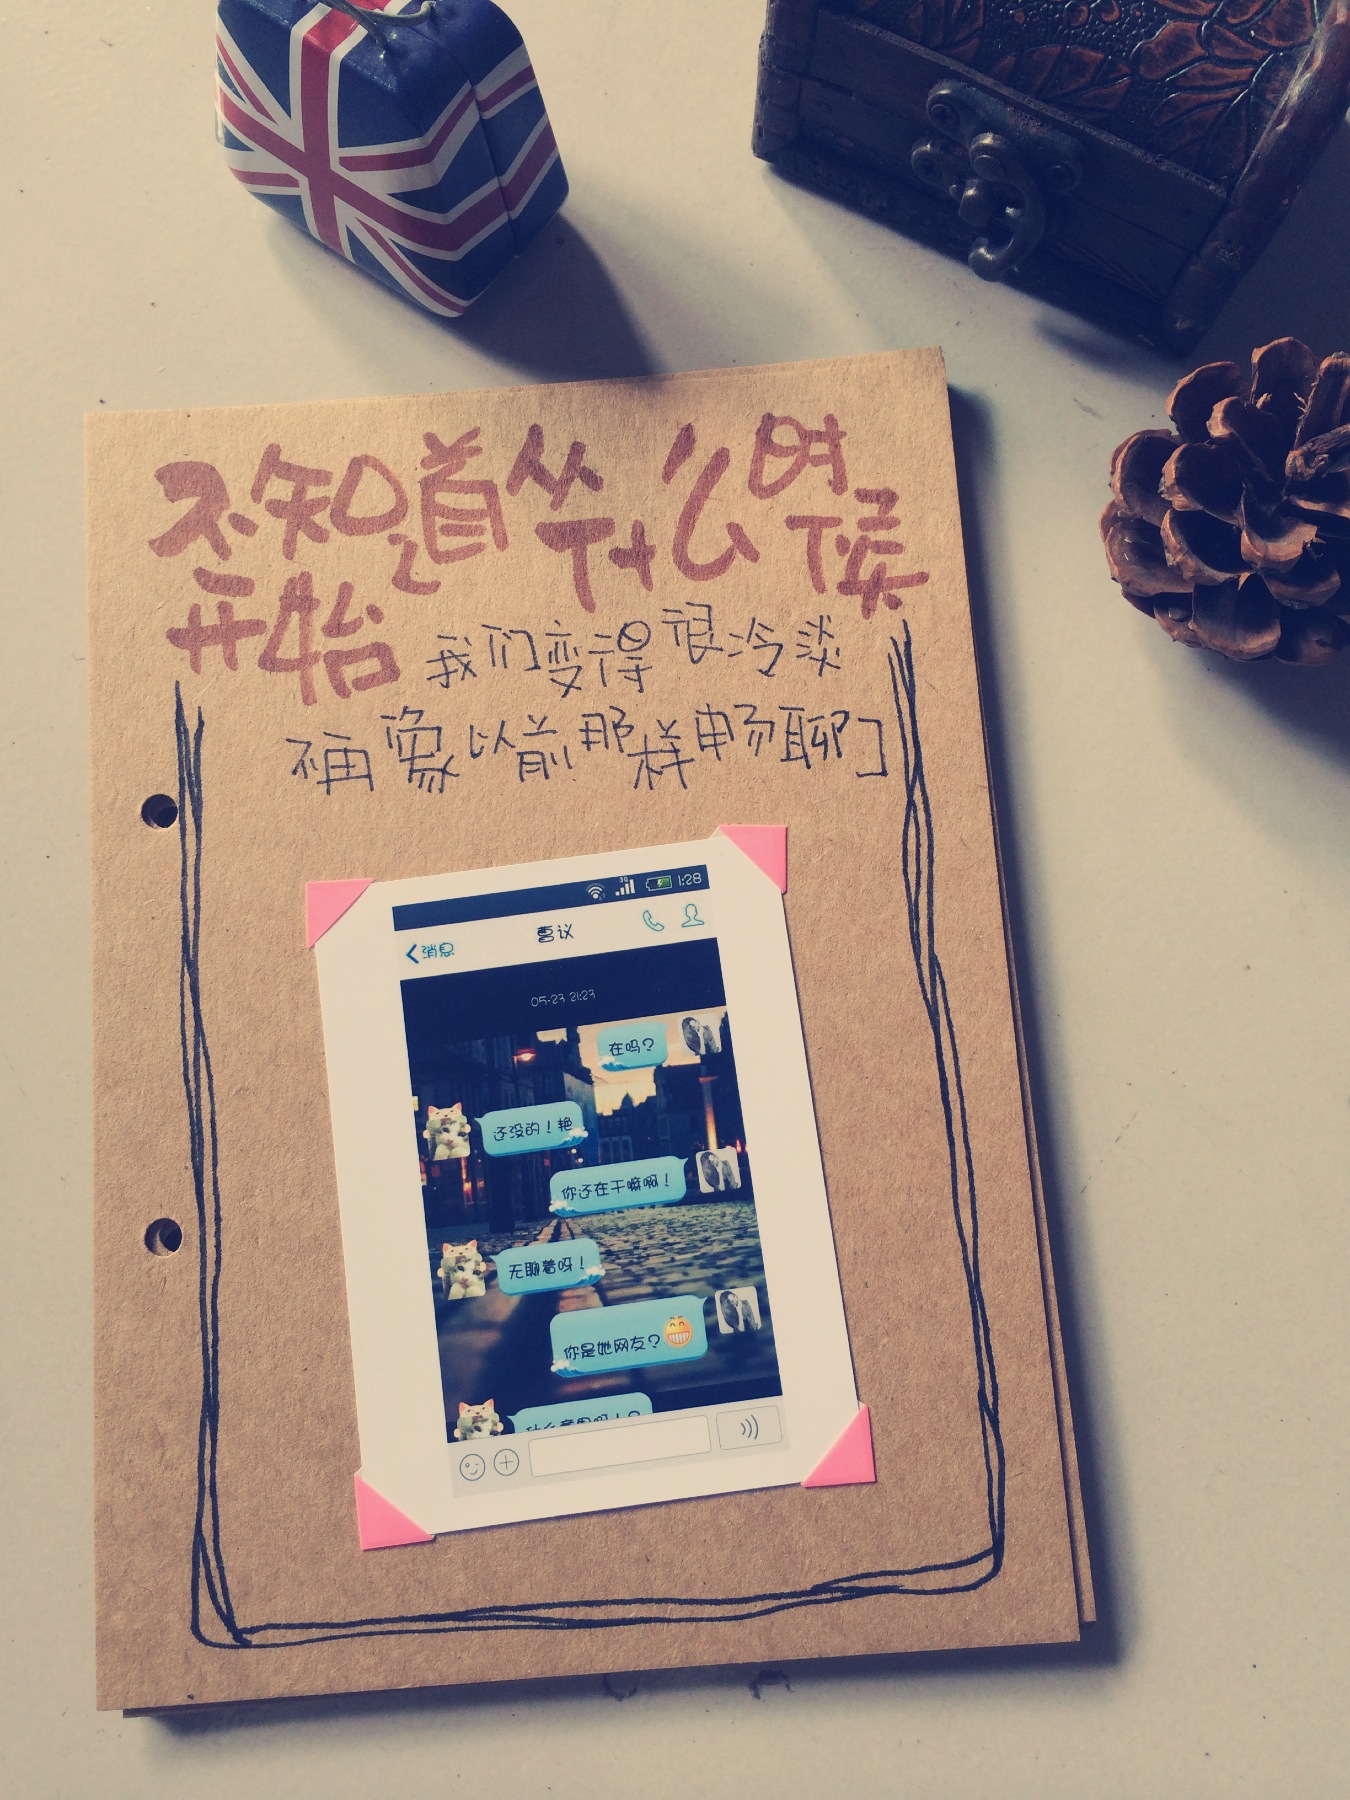 不知道从什么时候
开始我们变得很冷淡
不再像以前那样畅聊了
3G 1:28
消息 曹议
05-23 21:23
在吗?
还没的!艳
你还在干嘛啊!
无聊着呀!
你是她网友?